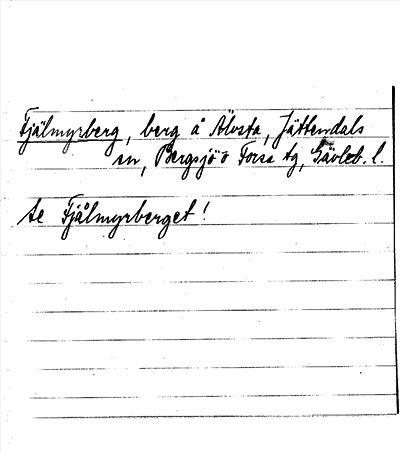 Fjälmyrberg, berg å Älvsta, Jättendals
sn, Bergsjö o Forsa tg, Gävleb. l.
se Fjålmyrberget!